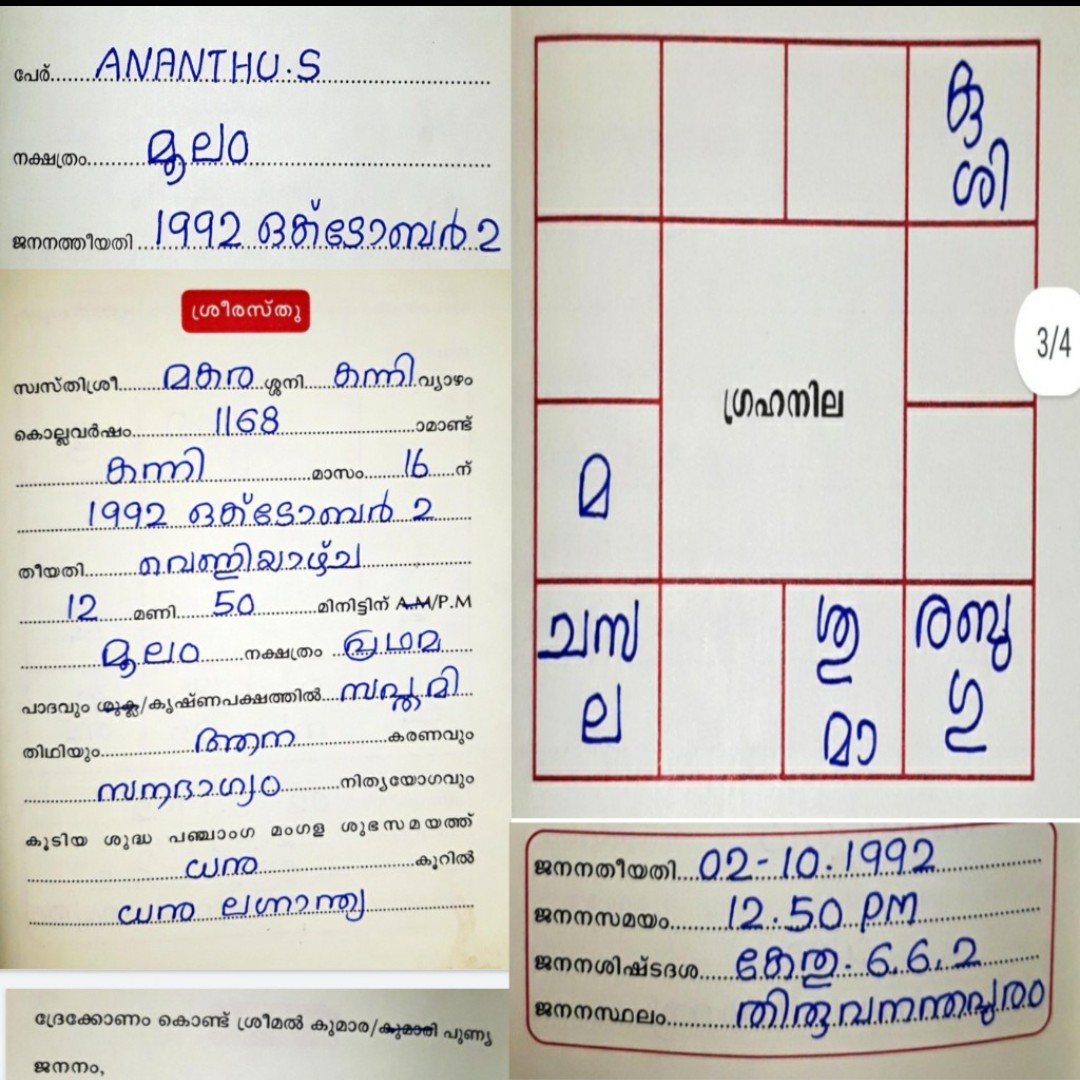 പേര് ANANTHU.S
നക്ഷത്രം മൂലം
ജനനത്തീയതി 1992 ഒക്ടോബർ 2
ശ്രീരസ്തു
സ്വസ്തിശ്രീ മകര ശ്ശനി കന്നി വ്യാഴം
കൊല്ലവർഷം 1168 ാമാണ്ട്
കന്നി മാസം 16 ന്
1992 ഒക്ടോബർ 2
തീയതി വെള്ളിയാഴ്ച
12 മണി 50 മിനിട്ടിന് A.M/P.M
മൂലം നക്ഷത്രം പ്രഥമ
പാദവും ശുക്ല/കൃഷ്ണപക്ഷത്തിൽ സപ്തമി
തിഥിയും ആന കരണവും
നിത്യയോഗവും
കൂടിയ ശുദ്ധ പഞ്ചാംഗ മംഗള ശുഭസമയത്ത്
ധനു കൂറിൽ
ധനു ലഗ്നാന്ത്യ
ദ്രേക്കോണം കൊണ്ട് ശ്രീമൽ കുമാര/കുമാരി പുണ്യ
ജനനം,
കു
ശി
3/4
ഗ്രഹനില
മ
ചസ
ല
ശു
മാ
രബു
ഗു
ജനനതീയതി 02-10.1992
ജനനസമയം 12.50 PM
ജനനശിഷ്ടദശ കേതു. 6.6.2
ജനനസ്ഥലം തിരുവനന്തപുരം